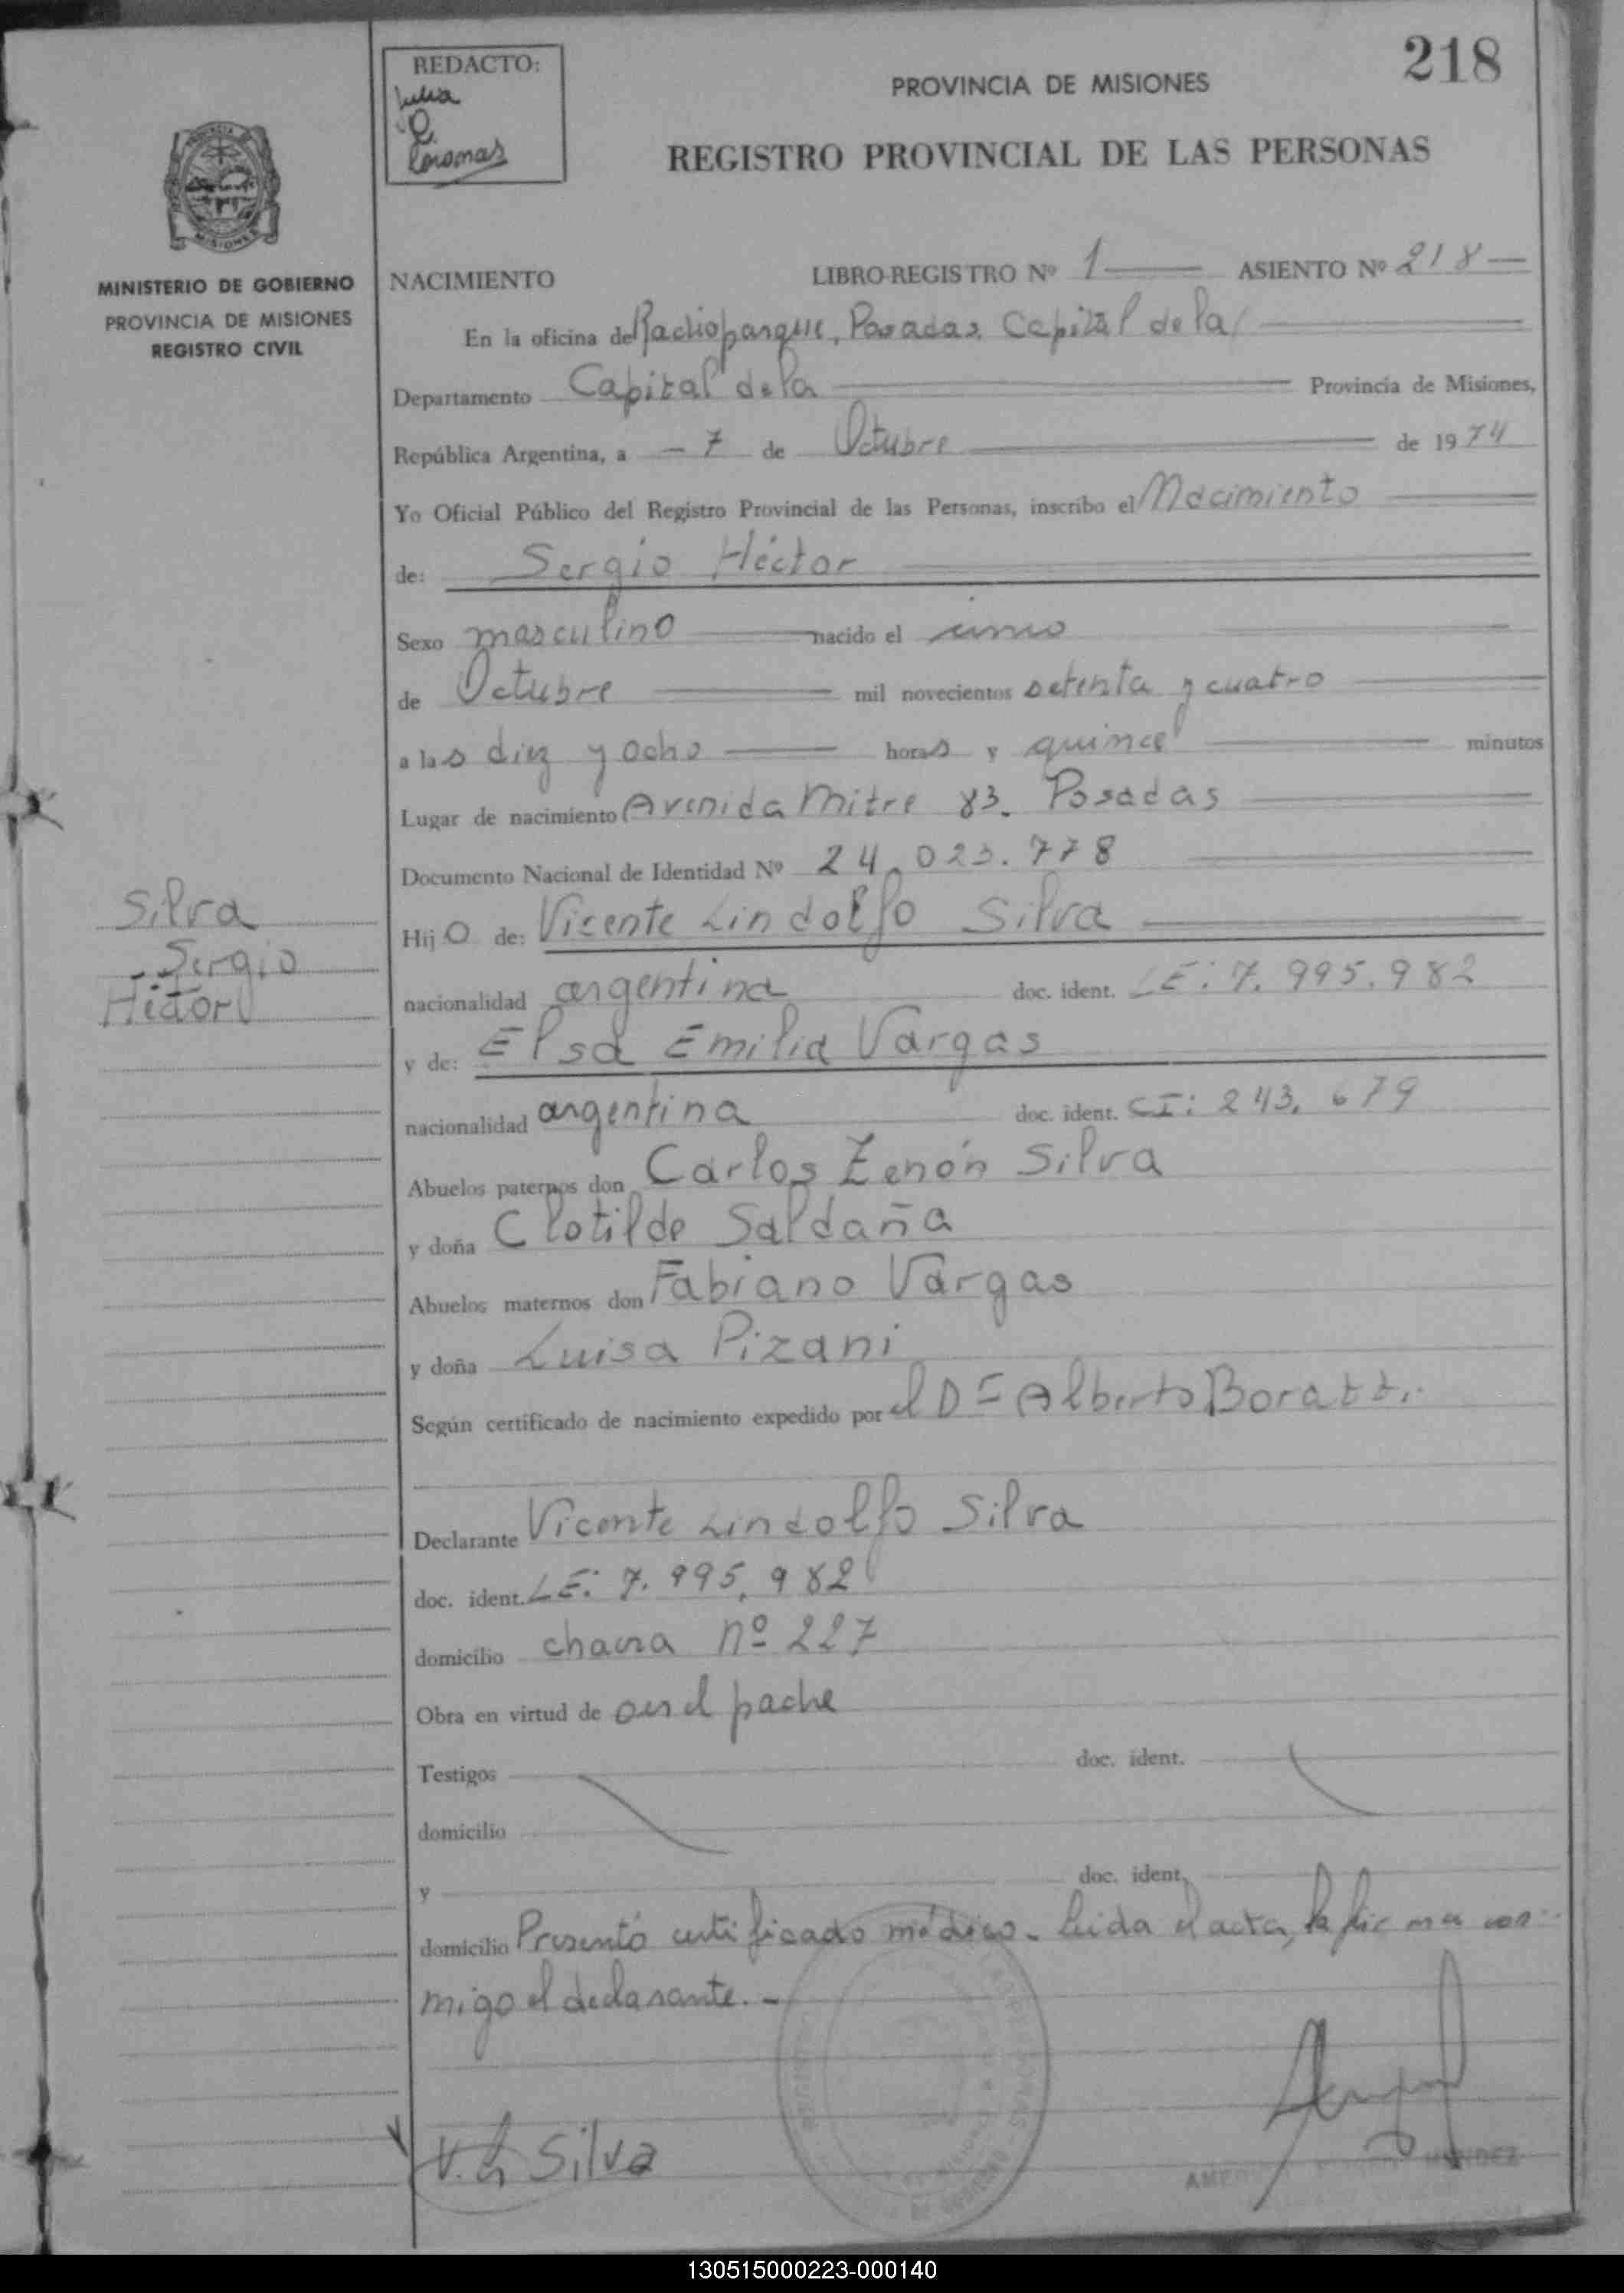 218
REDACTO:
Julia
PROVINCIA DE MISIONES
REGISTRO PROVINCIAL DE LAS PERSONAS
MINISTERIO DE GOBIERNO
PROVINCIA DE MISIONES
REGISTRO CIVIL
NACIMIENTO LIBRO-REGISTRO Nº 1 ASIENTO Nº 218
En la oficina de Radioparque, Posadas, Capital de la
Departamento Capital de la Provincia de Misiones,
República Argentina, a - 7 de Octubre de 1974
Yo Oficial Público del Registro Provincial de las Personas, inscribo el Nacimiento
de: Sergio Héctor
Sexo masculino nacido el
de Octubre mil novecientos setenta y cuatro
a las diez y ocho horas y quince minutos
Lugar de nacimiento Avenida Mitre 83. Posadas
Documento Nacional de Identidad Nº 24.023.778
Silva
Sergio
Héctor
Hijo de: Vicente Lindolfo Silva
nacionalidad argentina doc. ident. LE: 7.995.982
y de: Elsa Emilia Vargas
nacionalidad argentina doc. ident. CI: 243.679
Abuelos paternos don Carlos Zenón Silva
y doña Clotilde Saldaña
Abuelos maternos don Fabiano Vargas
y doña Luisa Pizani
Según certificado de nacimiento expedido por el Dr Alberto Boratti.
Declarante Vicente Lindolfo Silva
doc. ident. LE: 7.995.982
domicilio chacra nº 227
Obra en virtud de ser el padre
Testigos doc. ident.
domicilio
y doc. ident.
domicilio Presentó certificado médico. Leida el acta, la firma con
migo el declarante. -
V. L. Silva
130515000223-000140